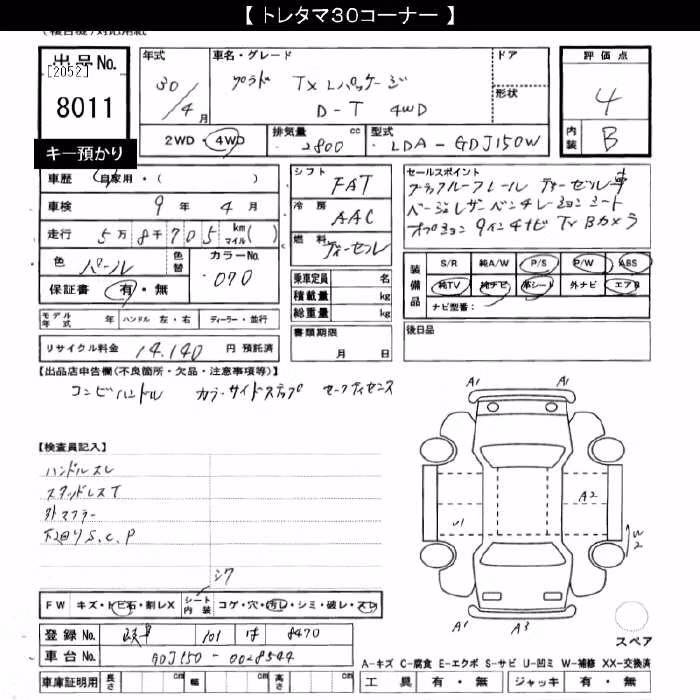 【 トレタマ30コーナー 】
出品No.
[2052]
8011
キー預かり
年式
30/4月
車名・グレード
プラド TXLパッケージ
D-T 4WD
ドア
形状
評価点
4
内装 B
2WD・4WD
排気量 2800 cc
型式 LDA-GDJ150W
車歴 自家用・( )
車検 9年 4月
走行 5万8千705 km マイル( )
色 パール
色替
カラーNo. 070
保証書 有・無
シフト FAT
冷房 AAC
燃料 ディーゼル
乗車定員 名
積載量 kg
総重量 kg
書類期限 月 日
セールスポイント
ブラックルーフレール ディーゼル車
ベージュレザーベンチレーションシート
オプション 9インチナビ TV Bカメラ
装備品
S/R 純A/W P/S P/W ABS
純TV 純ナビ 革シート 外ナビ エアB
ナビ型番:
後日品
モデル年式 年 ハンドル 左・右 ディーラー・並行
リサイクル料金 14,140 円 預託済
【出品店申告欄(不良箇所・欠品・注意事項等)】
コンビハンドル カラーサイドステップ セーフティセンス
【検査員記入】
ハンドルスレ
スタッドレスT
外マフラー
下回りS.C.P
シワ
A1 A1
A2
U1
W2
A1 A3
スペア
FW キズ・トビ石・割レX シート内装 コゲ・穴・汚レ・シミ・破レ・スレ
登録No. 岐阜 101 は 8470
車台No. GDJ150-0028544
車庫証明用 長さ cm 幅 cm 高さ cm
A-キズ C-腐食 E-エクボ S-サビ U-凹ミ W-補修 XX-交換済
工具 有・無 ジャッキ 有・無